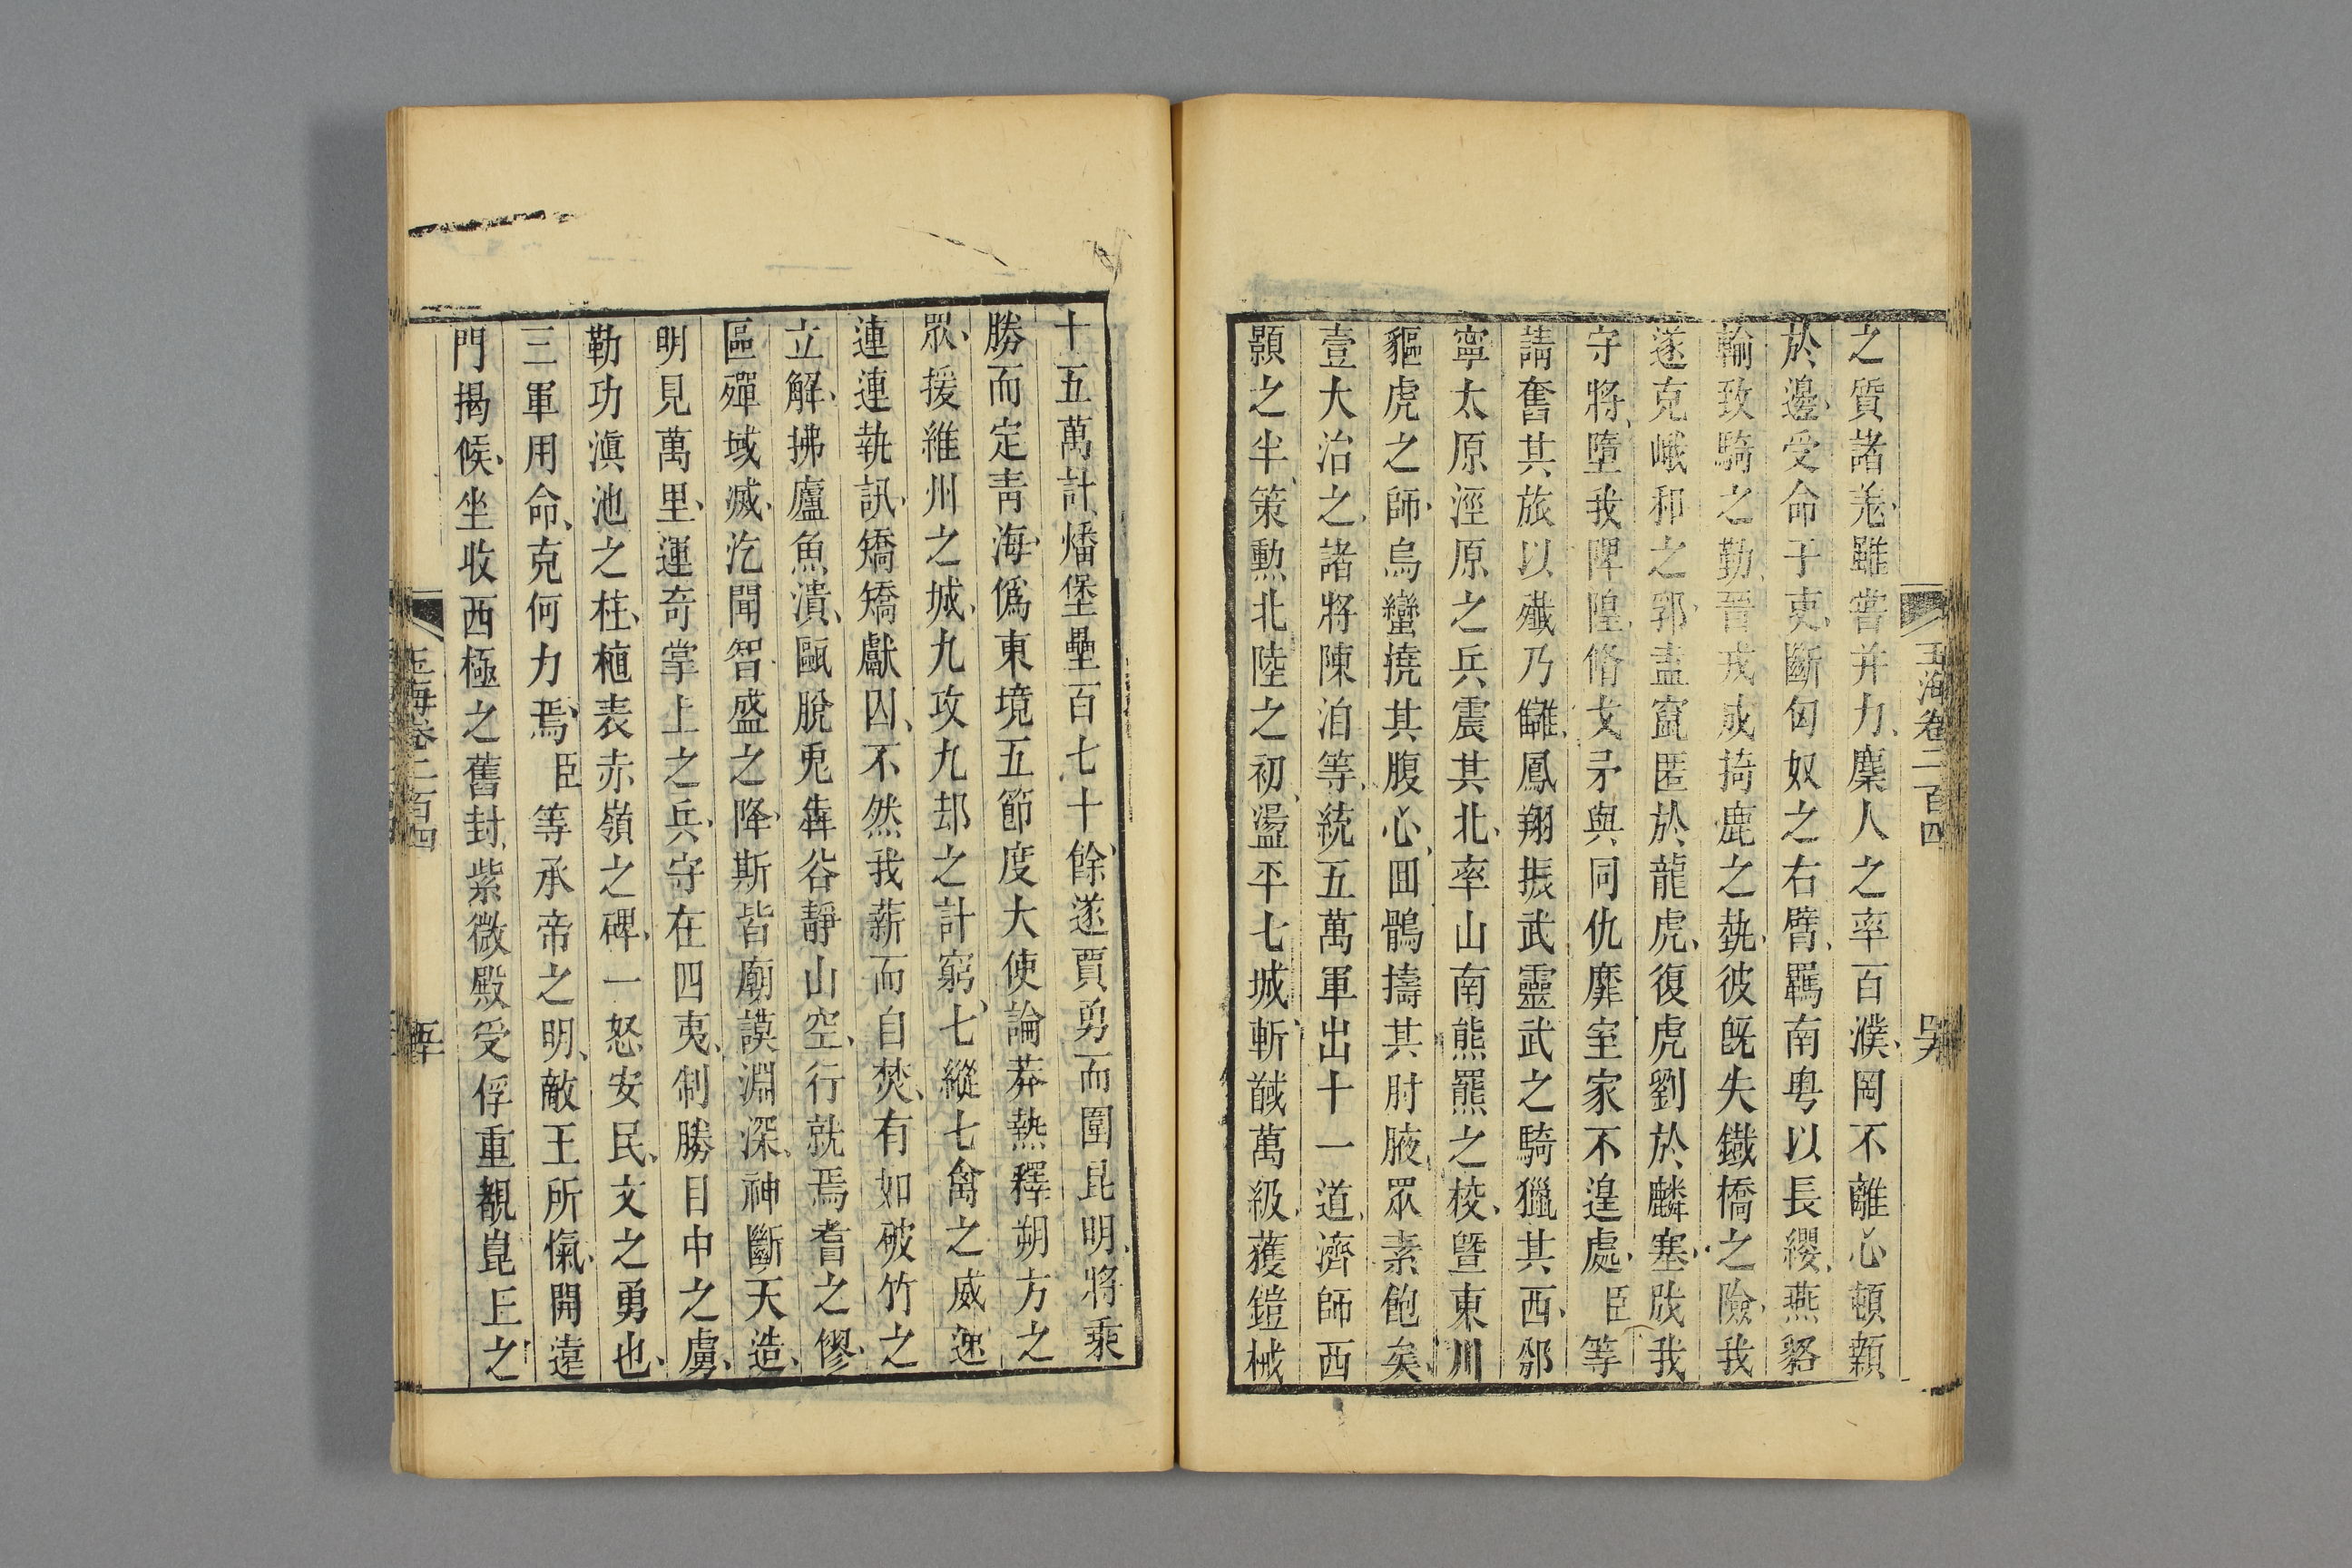 玉海卷二百四
之質諸羌雖嘗并力麋人之率百濮罔不離心頓顙
於邊受命于吏斷匈奴之右臂羈南粤以長纓燕貉
輸致騎之勤晉戎成掎鹿之埶彼旣失鐵橋之險我
遂克峨和之郛盡竄匿於龍虎復虔劉於麟塞戕我
守將墮我陴隍脩戈矛與同仇靡室家不遑處臣等
請奮其旅以殱乃讎鳳翔振武靈武之騎獵其西邠
寧太原涇原之兵震其北率山南熊羆之校曁東川
貙虎之師烏蠻撓其腹心囬鶻擣其肘腋眾素飽矣
壹大治之諸將陳洎等統五萬軍出十一道濟師西
顥之半策勲北陸之初盪平七城斬馘萬級獲鎧械
十五萬計燔堡壘百七十餘遂賈勇而圍昆明將乘
勝而定靑海僞東境五節度大使論莽熱釋朔方之
眾援維州之城九攻九却之計窮七縱七禽之威速
連連執訊矯矯獻囚不然我薪而自焚有如破竹之
立解拂廬魚潰甌脫兎犇谷靜山空行就焉耆之僇
區殫域滅汔聞智盛之降斯皆廟謨淵深神斷天造
明見萬里運奇掌上之兵守在四夷制勝目中之虜
勒功滇池之柱植表赤嶺之碑一怒安民文之勇也
三軍用命克何力焉臣等承帝之明敵王所愾開遠
門揭候坐收西極之舊封紫微殿受俘重觀崑丘之
玉海卷二百四